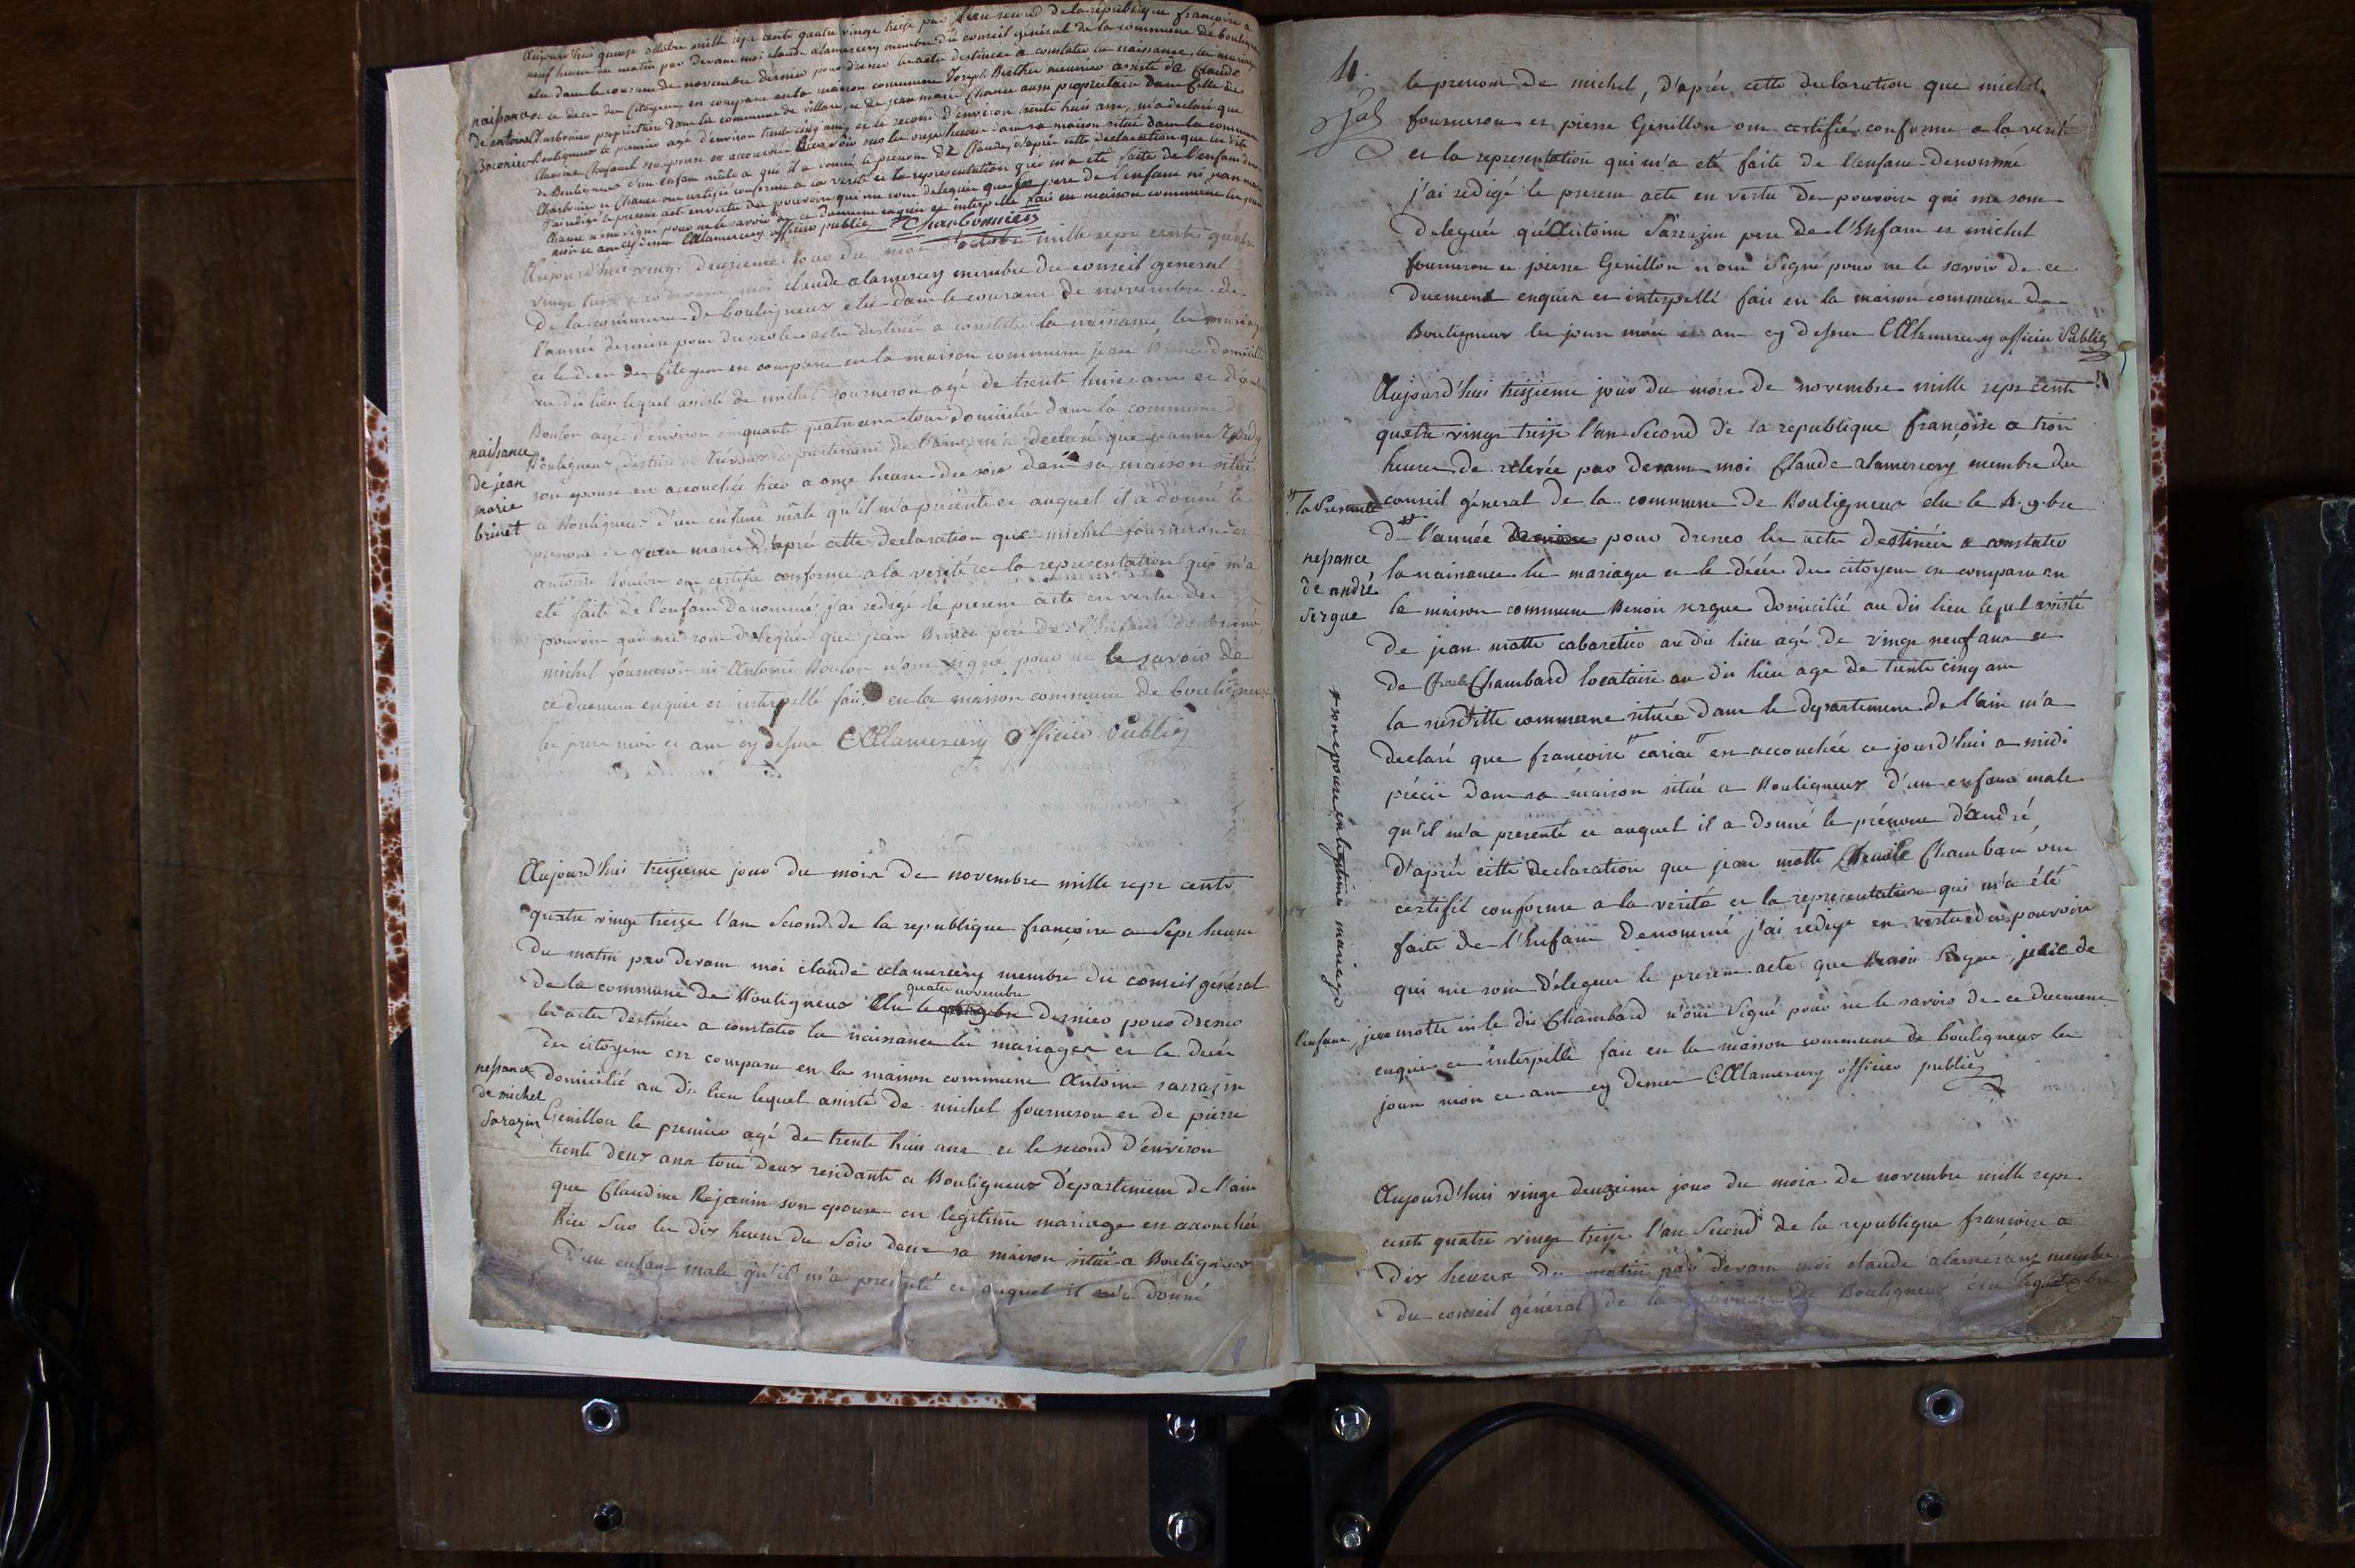 Aujourd'hui quinze octobre mille sept cents quatre vingt treize l'an second de la republique françoise a
neuf heures du matin par devant moi claude alamercery membre du conseil général de la commune de bouligneux
elu dans le courant de novembre dernier pour dresser les actes destinées a constater la naissance, les mariages
et le deces des Citoyens est comparu en la maison commune Joseph meunier assisté de Claude
Charbonier propriétaire dans la commune de villars, et de jean marie Chanee aussi propriétaire dans celle de
Bouligneux le premier agé d'environ trente cinq ans, et le second d'environ trente huit ans, m'a declaré que
son epouse est accouchée hier soir sur les onze heures dans sa maison situé dans la commune
de Bouligneux d'un enfant mâle a qui il a donné le prenom de Claude, d'après cette declaration que les dits
Charbonier et Chanee ont certifié conforme a la verité et la representation qui m'a été faite de l'enfant
J'ai redigé le present acte en vertu des pouvoirs qui me sont delegués que le pere de l'enfant ni jean marie
Chanee n'ont signé pour ne le savoir de ce duement enquis et interpellé fait en maison commune les jours
mois et an cy dessus CAlamercery officier public Charbonnier
naissance
Aujourd'hui vingt deuxieme jour du mois d'octobre mille sept cents quatre
vingt treize par devant moi claude alamercery membre du conseil general
de la commune de bouligneux elu dans le courant de novembre de
l'année derniere pour dresser les actes destinés a constater la naissance, les mariages
et le deces des Citoyens est comparu en la maison commune jean Brinet domicilié
au dit lieu lequel assisté de michel fourneron agé de trente huit ans et d'antoine
Boulon agé d'environ cinquante quatre ans tous domiciliés dans la commune de
Bouligneux district de Trévoux departement de l'ain, m'a declaré que jeanne
son epouse est accouchée hier a onze heures du soir dans sa maison situé
a Bouligneux d'un enfant mâle qu'il m'a presenté et auquel il a donné le
prenom de jean marie d'après cette declaration que michel fourneron et
antoine Boulon ont certifié conforme a la verité et la representation qui m'a
eté faite de l'enfant denommé j'ai redigé le present acte en vertu des
pouvoirs qui me sont delegués que jean Brinet pere de l'Enfant denommé,
michel fourneron ni Antoine Boulon n'ont signé pour ne le savoir de
ce duement enquis et interpellé fait en la maison commune de bouligneux
les jours mois et an cy dessus CAlamercery officier Public
naissance
de jean
marie
brinet
Aujourd'hui treizieme jour du mois de novembre mille sept cents
quatre vingt treize l'an second de la republique françoise a Sept heures
du matin par devant moi claude alamercery membre du conseil général
quatre novembre
de la commune de Bouligneux Elu le 9bre dernier pour dresser
les actes destinés a constater la naissance les mariages et le deces
des citoyens est comparu en la maison commune Antoine sarrazin
domicilié au dit lieu lequel assisté de michel fourneron et de pierre
Genillon le premier agé de trente huit ans et le second d'environ
trente deux ans tous deux residants a Bouligneux Département de l'ain
que Claudine Rejanin son epouse en legitime mariage est accouchée
hier sur les dix heures du Soir dans sa maison situé a Bouligneux
D'un enfant male qu'il m'a presenté et auquel il a donné
nessance
de michel
Sarazin
4.
le prenom de michel, d'après cette declaration que michel
fourneron et pierre Genillon ont certifié conforme a la verité
et la representation qui m'a eté faite de l'enfant denommé
j'ai redigé le present acte en vertu des pouvoirs qui me sont
delegués qu'Antoine Sarrazin pere de l'Enfant et michel
fourneron et pierre Genillon n'ont Signé pour ne le savoir de ce
duement enquis et interpellé fait en la maison commune de
Bouligneux les jours mois et an cy dessus CAlamercery officier Public
Aujourd'hui treizieme jour du mois de novembre mille sept cents
quatre vingt treize l'an Second de la republique françoise a trois
heures de relevée par devant moi Claude alamercery membre du
conseil géneral de la commune de Bouligneux elu le 4 9bre
la Presente
de l'année derniere pour dresser les actes destinés a constater
la naissance les mariages et le décès des citoyens est comparu en
la maison commune Benoit sergue domicilié au dit lieu lequel assisté
de jean motte cabaretier au dit lieu agé de vingt neuf ans et
de Chambard locataire au dit lieu agé de trente cinq ans
la susditte commune située dans le departement de l'ain m'a
declaré que francoise cariat est accouchée ce jourd'hui a midi
précis dans sa maison situé a Bouligneux d'un enfant male
qu'il m'a presenté et auquel il a donné le prénom d'andré
d'après cette declaration que jean motte Chambard ont
certifié conforme a la verité et la representation qui m'a été
faite de l'Enfant denommé j'ai redigé en vertu des pouvoirs
qui me sont délegués le present acte que Benoit Sergue, pere de
l'enfant, jean motte ni le dit Chambard n'ont Signé pour ne le savoir de ce duement
enquis et interpellé fait en la maison commune de bouligneux les
jours mois et an cy dessus CAlamercery officier public
nessance
de andré
Sergue
son epouse en legitime mariage
Aujourd'hui vingt deuxieme jour du mois de novembre mille sept
cents quatre vingt treize l'an Second de la republique françoise a
dix heures du matin par devant moi claude alamercery membre
du conseil général de la commune de Bouligneux élu le quatre 9bre